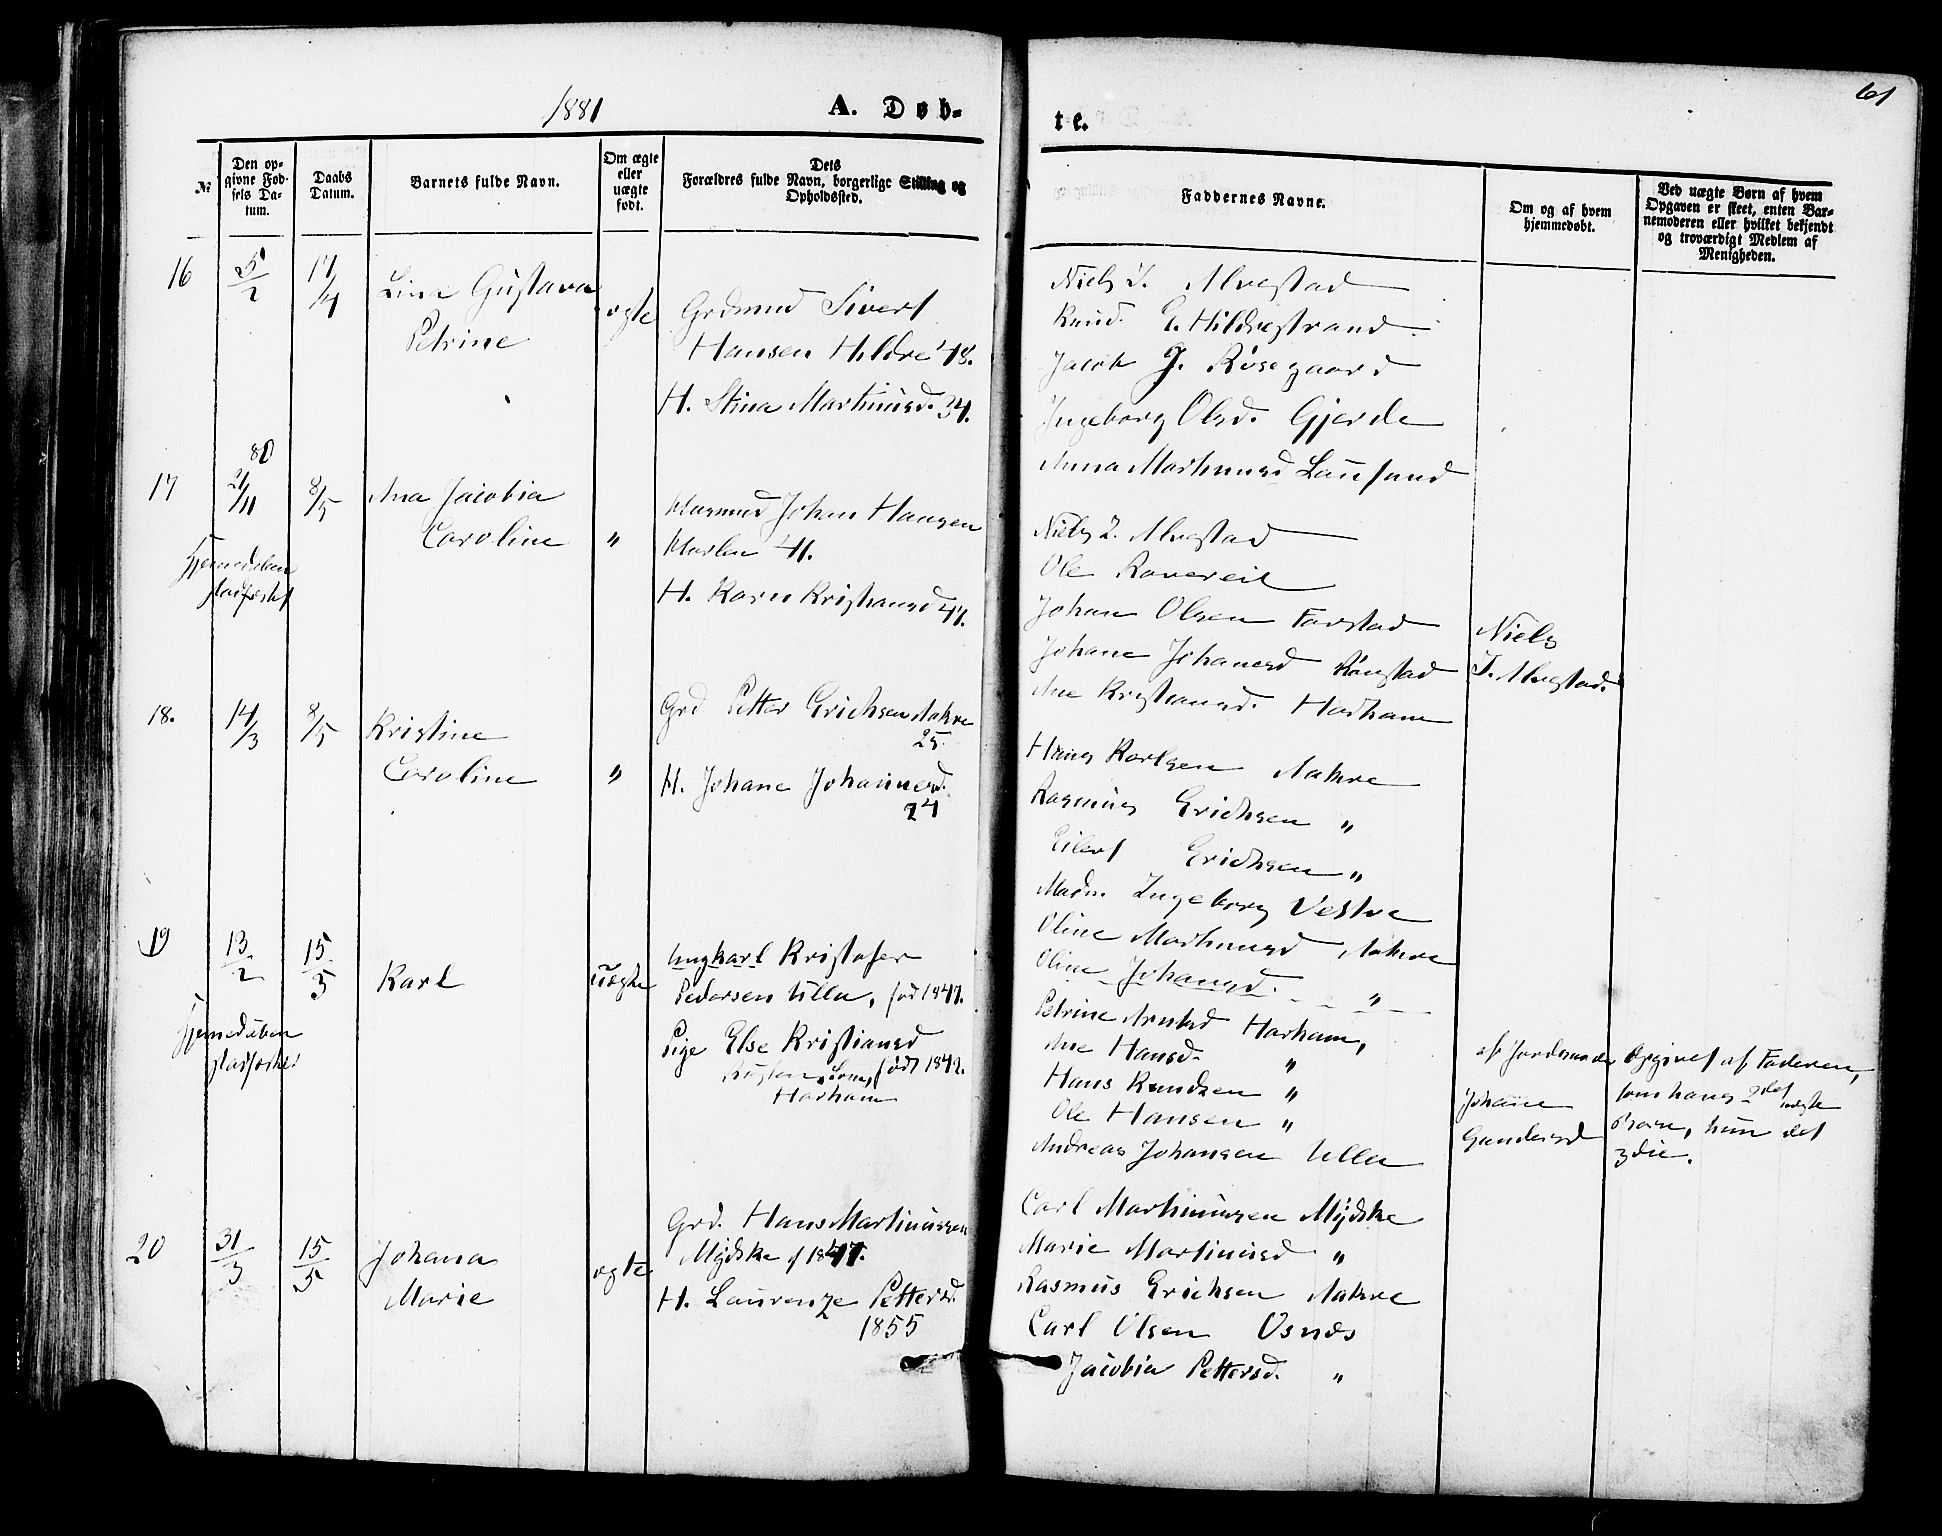 1881
A. Døb-
te.
61
№
Den op-
givne Fød-
sels Da-
tum.
Daabs
Datum.
Barnets fulde Navn.
Om ægte
eller
uægte
født.
Dets
Forældres fulde Navn, borgerlige Stilling og
Opholdssted.
Faddernes Navne.
Om og af hvem
hjemmedøbt.
Ved uægte Børn af hvem
Opgaven er skeet, enten Bar-
nemoderen eller hvilket bekjendt
og troværdigt Medlem af
Menigheden.
16
5/2
17/4
Lina Gustava
Petrine
ægte
Grdmnd Sivert
Hansen Hildre 48.
H. Stina Martinusd. 34.
Niels T. Alvestad
Knud E. Hildrestrand
Jacob J. Røsegaard
Ingeborg Olsd. Gjerde
Anna Martinusd Lausund
17
80
21/11
8/5
Ana Jacobia
Caroline
"
Johan Hansen
H. Karn Kristiansd 47.
Niels T. Alvestad
Ole
Johan Olsen Farstad
Johane Johanesd Rønstad
Ane Kristiansd. Harham
Hjemmedaaben
stadfæstet
Niels
T. Alvestad.
18.
14/3
8/5
Kristine
Caroline
"
Grd Petter Erichsen Aakre
25.
H. Johane Johannesd.
24
Hans Karlsen Aakre
Rasmus Erichsen "
Eilert Erichsen "
Madm. Ingeborg Vestre
Oline Martinusd Aakre
Oline Johansd. "
19
13/2
15/5
Karl
uægte
Ungkarl Kristofer
Pedersen Ulla, født 1847.
Pige Else Kristiansd
født 1842.
Harham
Petrine Arntsd Harham,
Ane Hansd. "
Hans Knudsen "
Ole Hansen "
Andreas Johansen Ulla
Hjemmedaaben
stadfæstet
af Jordemoder
Johane
Gundersd
Opgivet af Faderen,
som hans 2det uægte
Barn, hun det
3die.
20
31/3
15/5
Johana
Marie
ægte
Grd. Hans Martinussen
Mydske f 1847.
H. Laurenze Pettersd.
1855
Carl Martinussen Mydske
Marie Martinusd "
Rasmus Erichsen Aakre
Carl Olsen Osnæs
Jacobia Pettersd. "